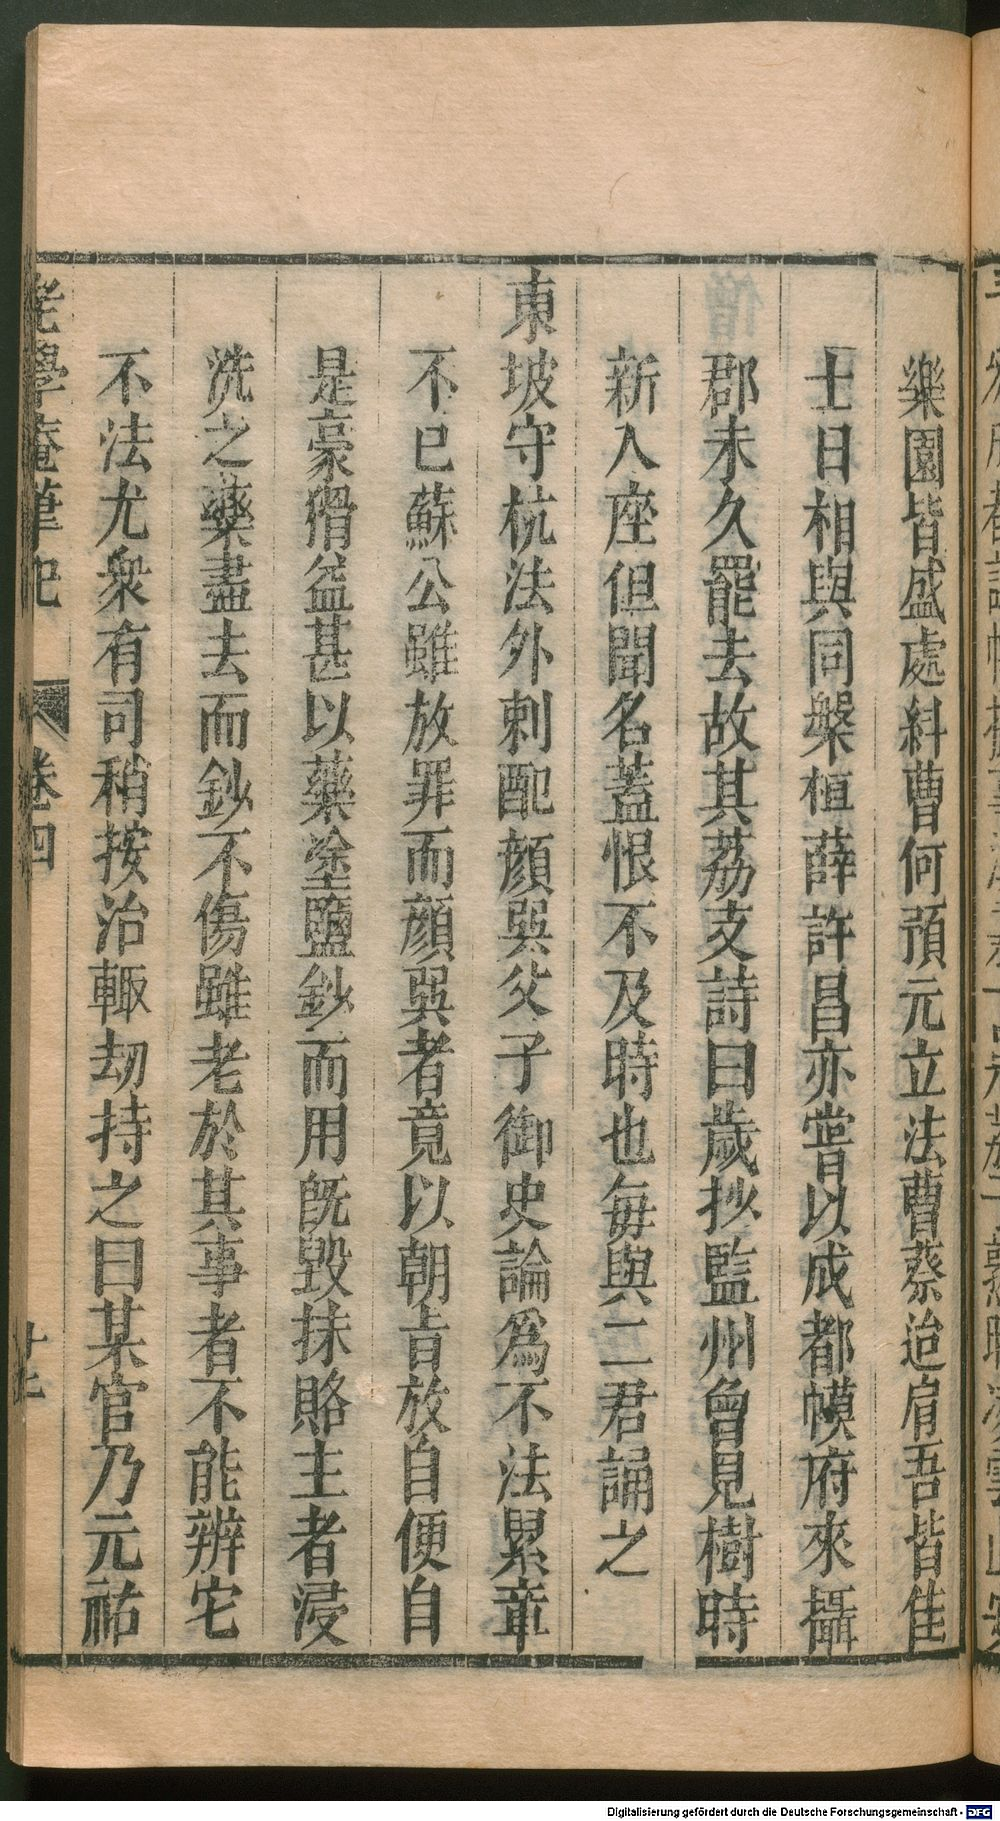 樂園皆盛處糾曹何預元立法曹蔡迨肩吾皆佳
士日相與同槃桓薛許昌亦嘗以成都幙府來攝
郡未久罷去故其荔支詩曰歲抄監州曾見樹時
新入座但聞名蓋恨不及時也每與二君誦之
東坡守杭法外刺配顔巽父子御史論爲不法累章
不已蘇公雖放罪而顔巽者竟以朝旨放自便自
是豪猾益甚以藥塗鹽鈔而用旣毀抹賂主者浸
洗之藥盡去而鈔不傷雖老於其事者不能辨宅
不法尤衆有司稍按治輒刼持之曰某官乃元祐
老學庵筆記 卷四 廿七
Digitalisierung gefördert durch die Deutsche Forschungsgemeinschaft - DFG